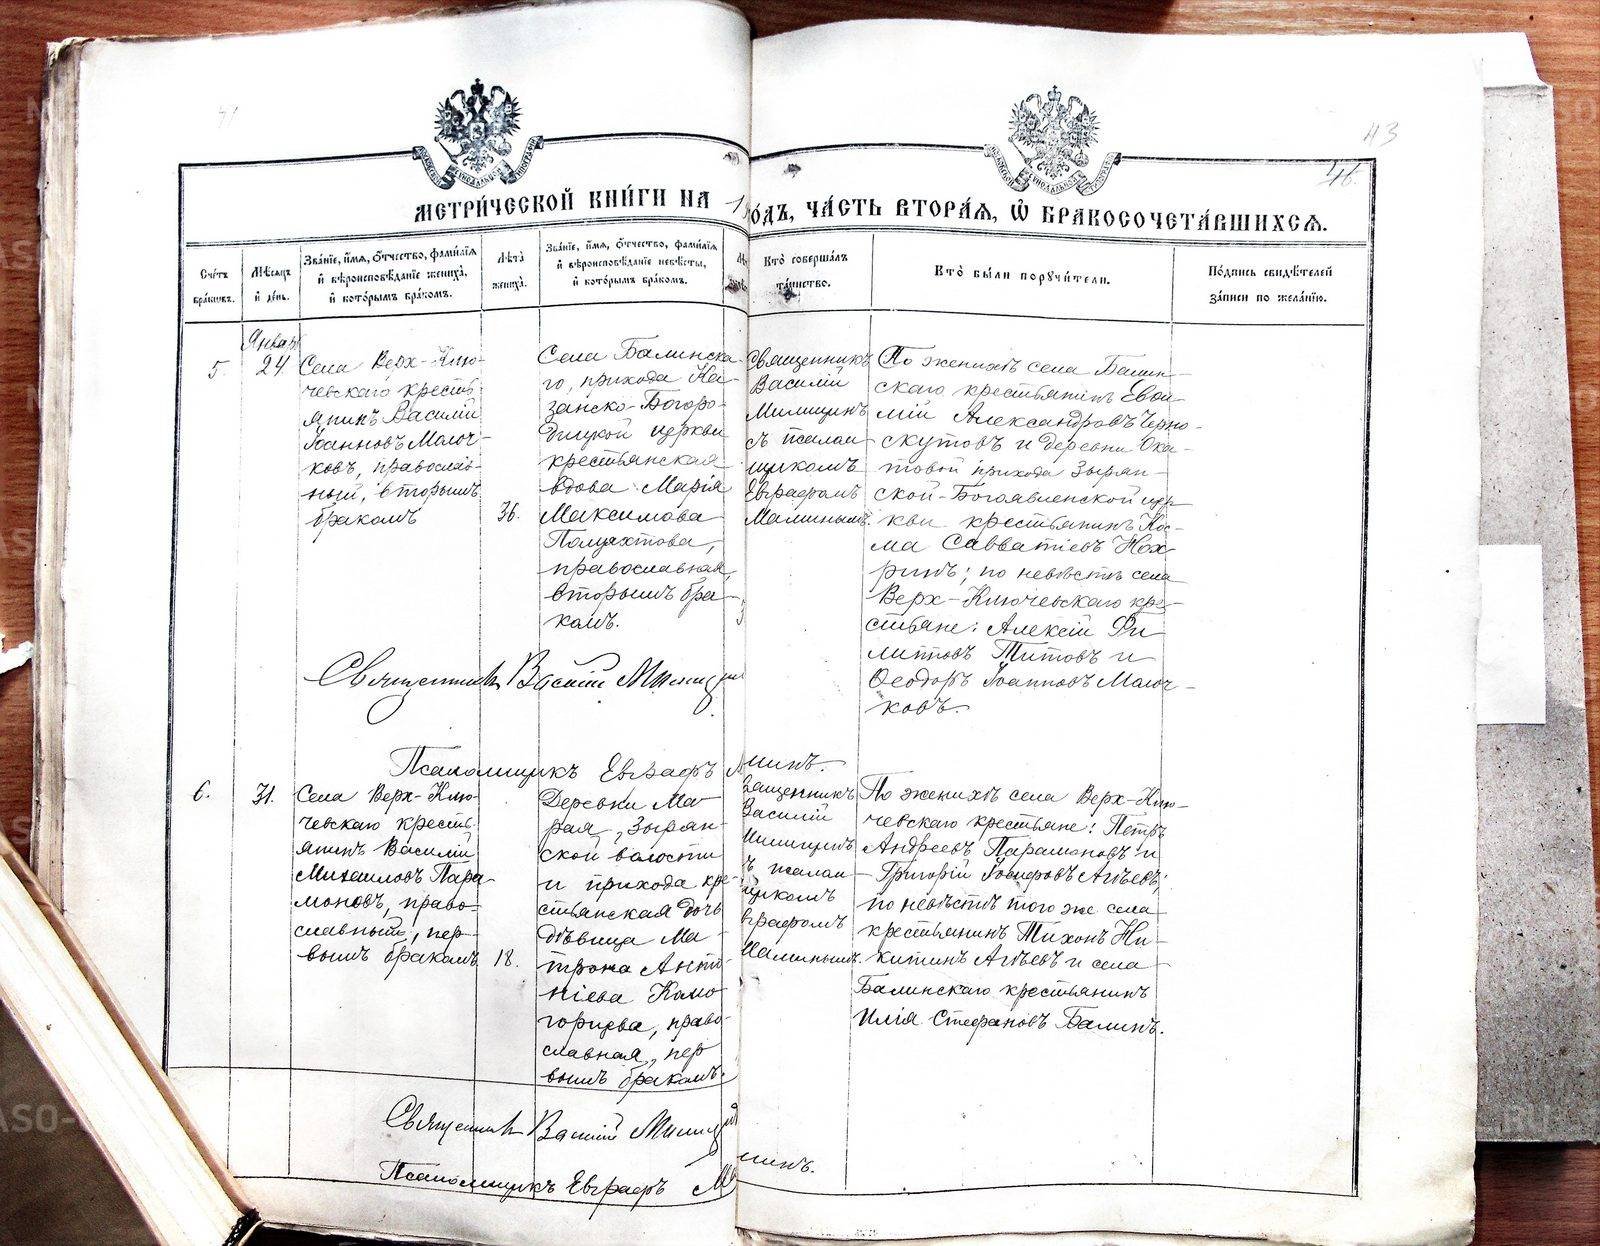 41
43
46.
МЕТРИ́ЧЕСКОЙ КНИ́ГИ НА 1
ОДЪ, ЧА́СТЬ ВТОРА́Я, Ѡ҆ БРАКОСОЧЕТА́ВШИХСЯ.
Сче́тъ
бра́ковъ.
Мѣ́сяцъ
и҆ де́нь.
Зва́нїе, и҆́мя, ѻ҆́тчество, фами́лїя
и҆ вѣроисповѣ́данїе жениха̀,
и҆ кото́рымъ бра́комъ.
Лѣ́та
жениха̀.
Зва́нїе, и҆́мя, ѻ҆́тчество, фами́лїя
и҆ вѣроисповѣ́данїе невѣ́сты,
и҆ кото́рымъ бра́комъ.
Кто̀ соверша́лъ
та́инство.
Кто̀ бы́ли порꙋчи́тели.
По́дпись свидѣ́телей
за́писи по жела́нїю.
5.
Январь
24
Села Верх-Клю-
чевскаго кресть-
янинъ Василій
Іоанновъ Молоч-
ковъ, православ-
ный, вторымъ
бракомъ
36.
Села Балинска-
го, прихода Ка-
занско-Богоро-
дицкой церкви
крестьянская
вдова Марія
Максимова
православная,
вторымъ бра-
комъ.
Священникъ
Василій
Милицинъ
съ псалом-
щикомъ
Евграфомъ
Малинымъ.
По женихѣ села Балин-
скаго крестьянинъ Евѳи-
мій Александровъ Черно-
скутовъ и деревни Ока-
товой прихода Зырян-
ской-Богоявленской цер-
кви крестьянинъ Кос-
ма Савватіевъ Нох-
ринъ; по невѣстѣ села
Верх-Ключевскаго кре-
стьяне: Алексій Фи-
липповъ Титовъ и
Ѳеодоръ Іоанновъ Молоч-
ковъ.
Священникъ Василій Милицин
Псаломщикъ Евграфъ М
линъ.
6.
31.
Села Верх-Клю-
чевскаго кресть-
янинъ Василій
Михаиловъ Пара-
моновъ, право-
славный, пер-
вымъ бракомъ
18.
Деревни Ма-
рая, Зырян-
ской волости
и прихода кре-
стьянская дочь
дѣвица Ма-
трона Анто-
ніева Комо-
горцева, право-
славная, пер-
вымъ бракомъ.
вященникъ
Василій
Милицинъ
ъ псалом-
щикомъ
вграфомъ
Малинымъ.
По женихѣ села Верх-Клю-
чевскаго крестьяне: Петръ
Андреевъ Парамоновъ и
Григорій Іовифовъ Агѣевъ;
по невѣстѣ того же села
крестьянинъ Тихонъ Ни-
китинъ Агѣевъ и села
Балинскаго крестьянинъ
Илія Стефановъ Балинъ.
Священникъ Василій Милицин
Псаломщикъ Евграфъ М
линъ.